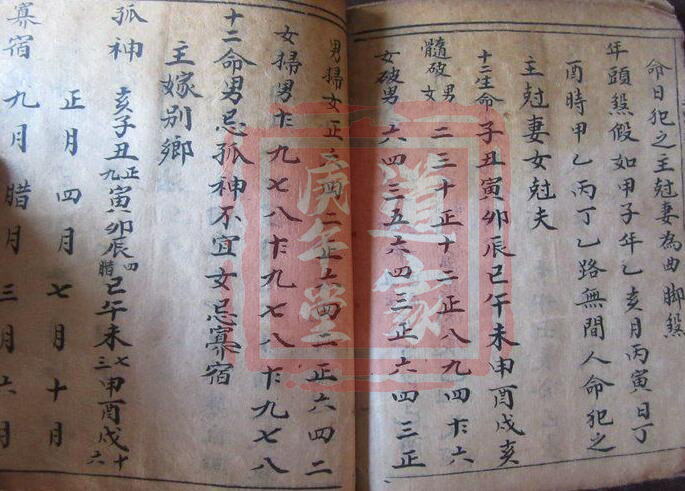 命日犯之主尅妻為曲脚煞
年頭煞假如甲子年乙亥月丙寅日丁
酉時甲乙丙丁乙路無間人命犯之
主尅妻女尅夫
十二生命子丑寅卯辰巳午未申酉戌亥
髓破男女二三十正十二正八九四十六
女破男六四三五六四三正六四三正
男婦女正六四二正六四二正六四二
女婦男九七八九七八九七八
十二命男忌孤神不宜女忌寡宿
主嫁别鄉
孤神亥子丑正九寅卯辰四腊巳午未七三申酉戌十六
正月四月七月十月
寡宿九月腊月三月六月
道家
庚午堂